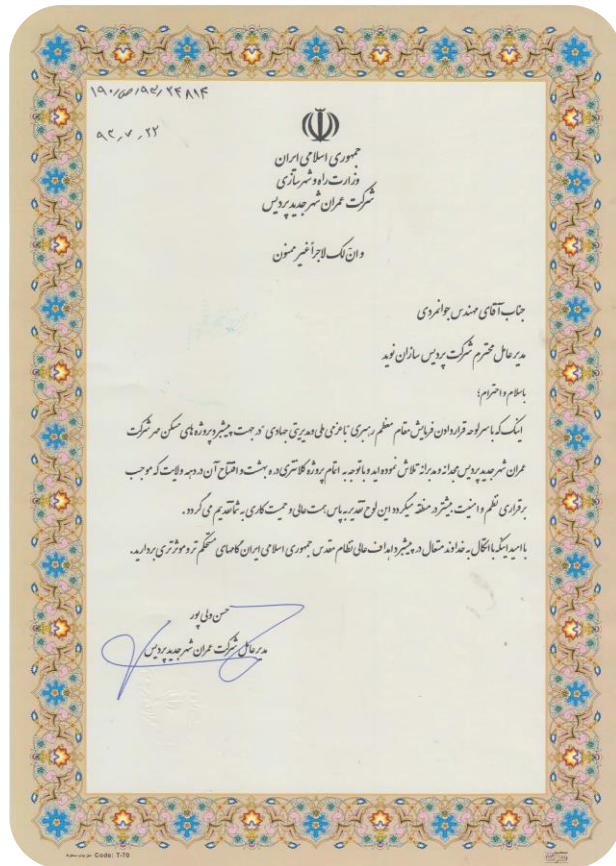 ۹۲٫۷٫۲۲
جمهوری اسلامی ایران
وزارت راه و شهرسازی
شرکت عمران شهر جدید پردیس
و ان لک لاجرا غیر ممنون
جناب آقای مهندس جوانمردی
مدیر عامل محترم شرکت پردیس سازان نوید
باسلام و احترام؛
اینک که با سرلوحه قراردادن فرمایش مقام معظم رهبری "با عزمی ملی و مدیریتی جهادی" در جهت پیشبرد پروژه های مسکن مهر شرکت
عمران شهر جدید پردیس مجدانه و مدبرانه تلاش نموده اید و با توجه به اتمام پروژه کلانتری دره بهشت و افتتاح آن در دهه ولایت که موجب
برقراری نظم و امنیت بیشتر در منطقه میگردد این لوح تقدیر به پاس همت عالی و جمیت کاری به شما تقدیم می گردد.
با امید اینکه با اتکال به خداوند متعال در پیشبرد اهداف عالی نظام مقدس جمهوری اسلامی ایران گامهای مستحکم تر و موثرتری بردارید.
حسن ولی پور
مدیر عامل شرکت عمران شهر جدید پردیس
Code: T-70